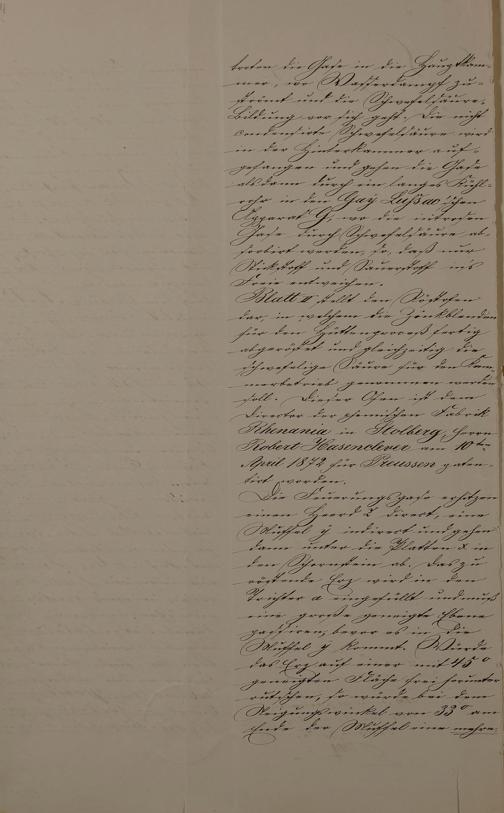 treten die Gase in die Hauptkam-
mer, wo Wasserdampf zu-
strömt und die Schwefelsäure-
Bildung vor sich geht. Die nicht
condensirte Schwefelsäure wird
in der Hinterkammer auf-
gefangen und gehen die Gase
alsdann durch ein langes Kühl-
rohr in den Gay Lussac'schen
Apparat G, wo die nitrosen
Gase durch Schwefelsäure ab-
sorbirt werden, so, daß nur
Stickstoff und Sauerstoff in's
Freie entweichen.
Blatt II stellt den Röstofen
dar, in welchem die Zinkblenden
für den Hüttenproceß fertig
abgeröstet und gleichzeitig die
schwefelige Säure für den Kam-
merbetrieb gewonnen werden
soll. Dieser Ofen ist dem
Director der chemischen Fabrik
Rhenania in Stolberg, Herrn
Robert Hasenclever am 10ten
April 1872 für Preussen paten-
tirt worden.
Die Feuerungsgase erhitzen
einen Heerd direct, eine
Muffel y indirect und gehen
dann unter die Platten x in
den Schornstein ab. Das zu
röstende Erz wird in den
Trichter a eingefüllt und muß
eine große geneigte Ebene
passiren, bevor es in die
Muffel y kommt. Würde
das Erz auf einer mit 45°
geneigten Fläche frei herunter
rutschen, so würde bei dem
Neigungswinkel von 33° am
Ende der Muffel eine mehre-